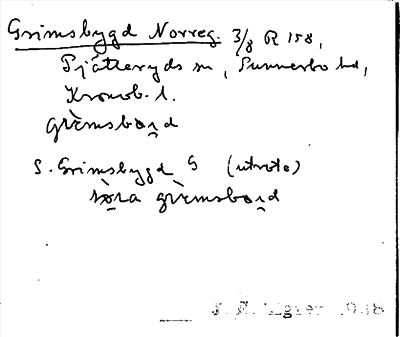 Grimsbygd Norreg. 3/8 R 158,
Pjätteryds sn, Sunnerbo hd,
Kronob. l.
grìmsboı̲d
S. Grimsbygd G (utrote)
sö̲̀ra grìmsboı̲d